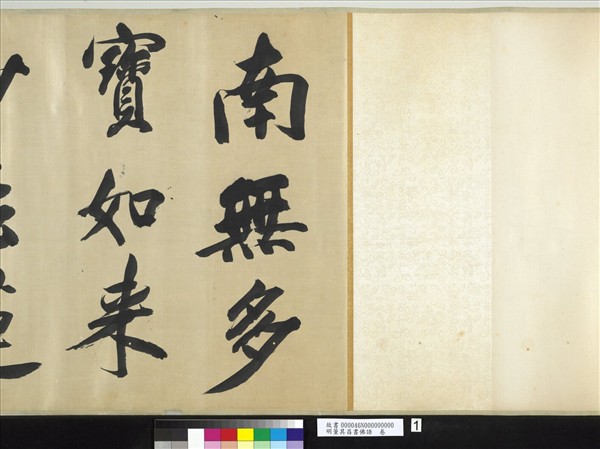 南無多
寶如来
故書 000046N000000000
明董其昌書佛語 卷
1